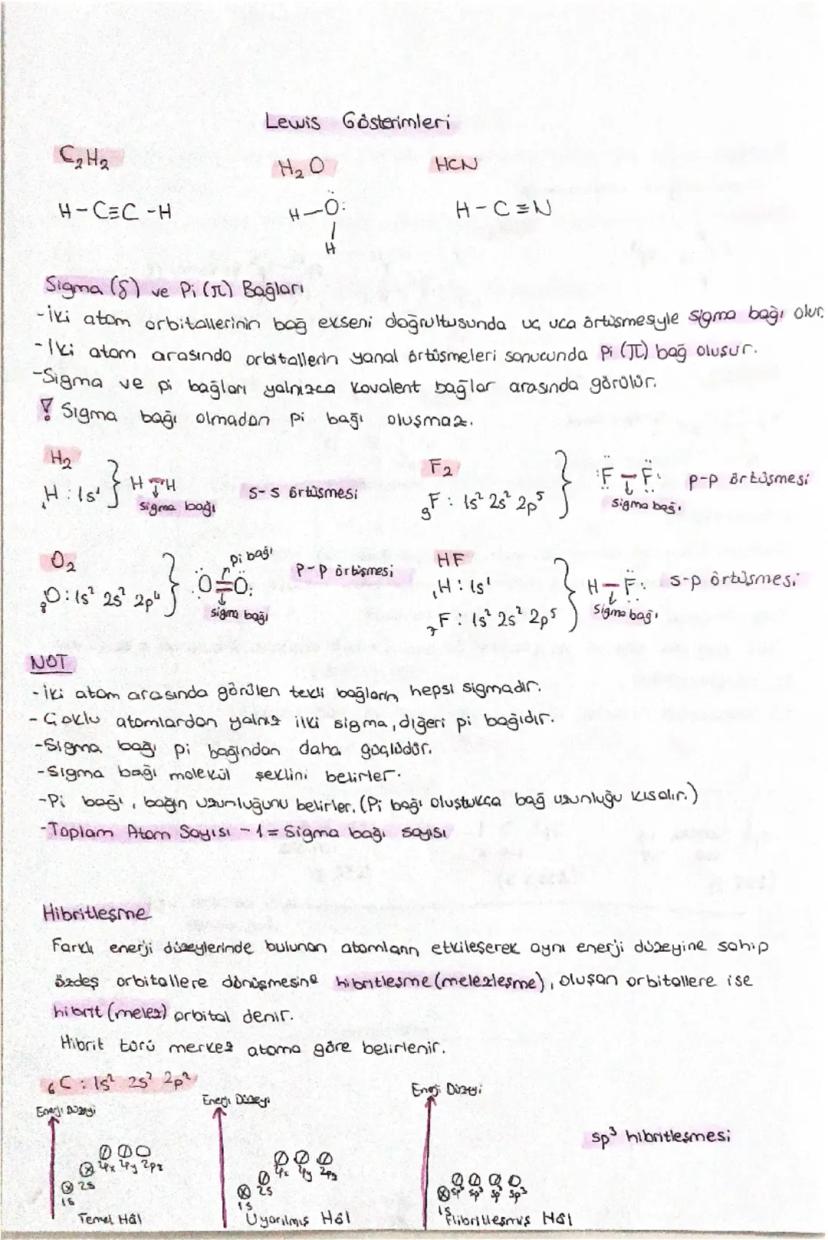 Lewis Gösterimleri
C₂H₂ H₂O HCN
H-C≡C-H H-Ö: H-C≡N
H
Sigma (δ) ve Pi (π) Bağları
-İki atom orbitallerinin bağ ekseni doğrultusunda uç uca örtüşmesiyle sigma bağı olur.
-İki atom arasında orbitallerin yanal örtüşmeleri sonucunda Pi (π) bağ oluşur.
-Sigma ve pi bağları yalnızca kovalent bağlar arasında görülür.
! Sigma bağı olmadan pi bağı oluşmaz.
H₂ F₂
₁H: 1s¹ } H-H s-s örtüşmesi ₉F: 1s² 2s² 2p⁵ } :F-F: p-p örtüşmesi
sigma bağı sigma bağı
O₂ pi bağı HF
₈O: 1s² 2s² 2p⁴ } Ö=Ö: p-p örtüşmesi ₁H: 1s¹ } H-F: s-p örtüşmesi
sigma bağı ₇F: 1s² 2s² 2p⁵ sigma bağı
NOT
-İki atom arasında görülen tekli bağların hepsi sigmadır.
-Çoklu atomlardan yalnız ilki sigma, diğeri pi bağıdır.
-Sigma bağı pi bağından daha güçlüdür.
-Sigma bağı molekül şeklini belirler.
-Pi bağı, bağın uzunluğunu belirler. (Pi bağı oluştukça bağ uzunluğu kısalır.)
-Toplam Atom Sayısı - 1 = Sigma bağı sayısı
Hibritleşme
Farklı enerji düzeylerinde bulunan atomların etkileşerek aynı enerji düzeyine sahip
özdeş orbitallere dönüşmesine hibritleşme (melezleşme), oluşan orbitallere ise
hibrit (melez) orbital denir.
Hibrit türü merkez atoma göre belirlenir.
₆C: 1s² 2s² 2p²
Enerji Düzeyi Enerji Düzeyi Enerji Düzeyi
sp³ hibritleşmesi
2px 2py 2pz 2px 2py 2pz
2s 2s sp³ sp³ sp³ sp³
1s 1s 1s
Temel Hâl Uyarılmış Hâl Hibritleşmiş Hâl